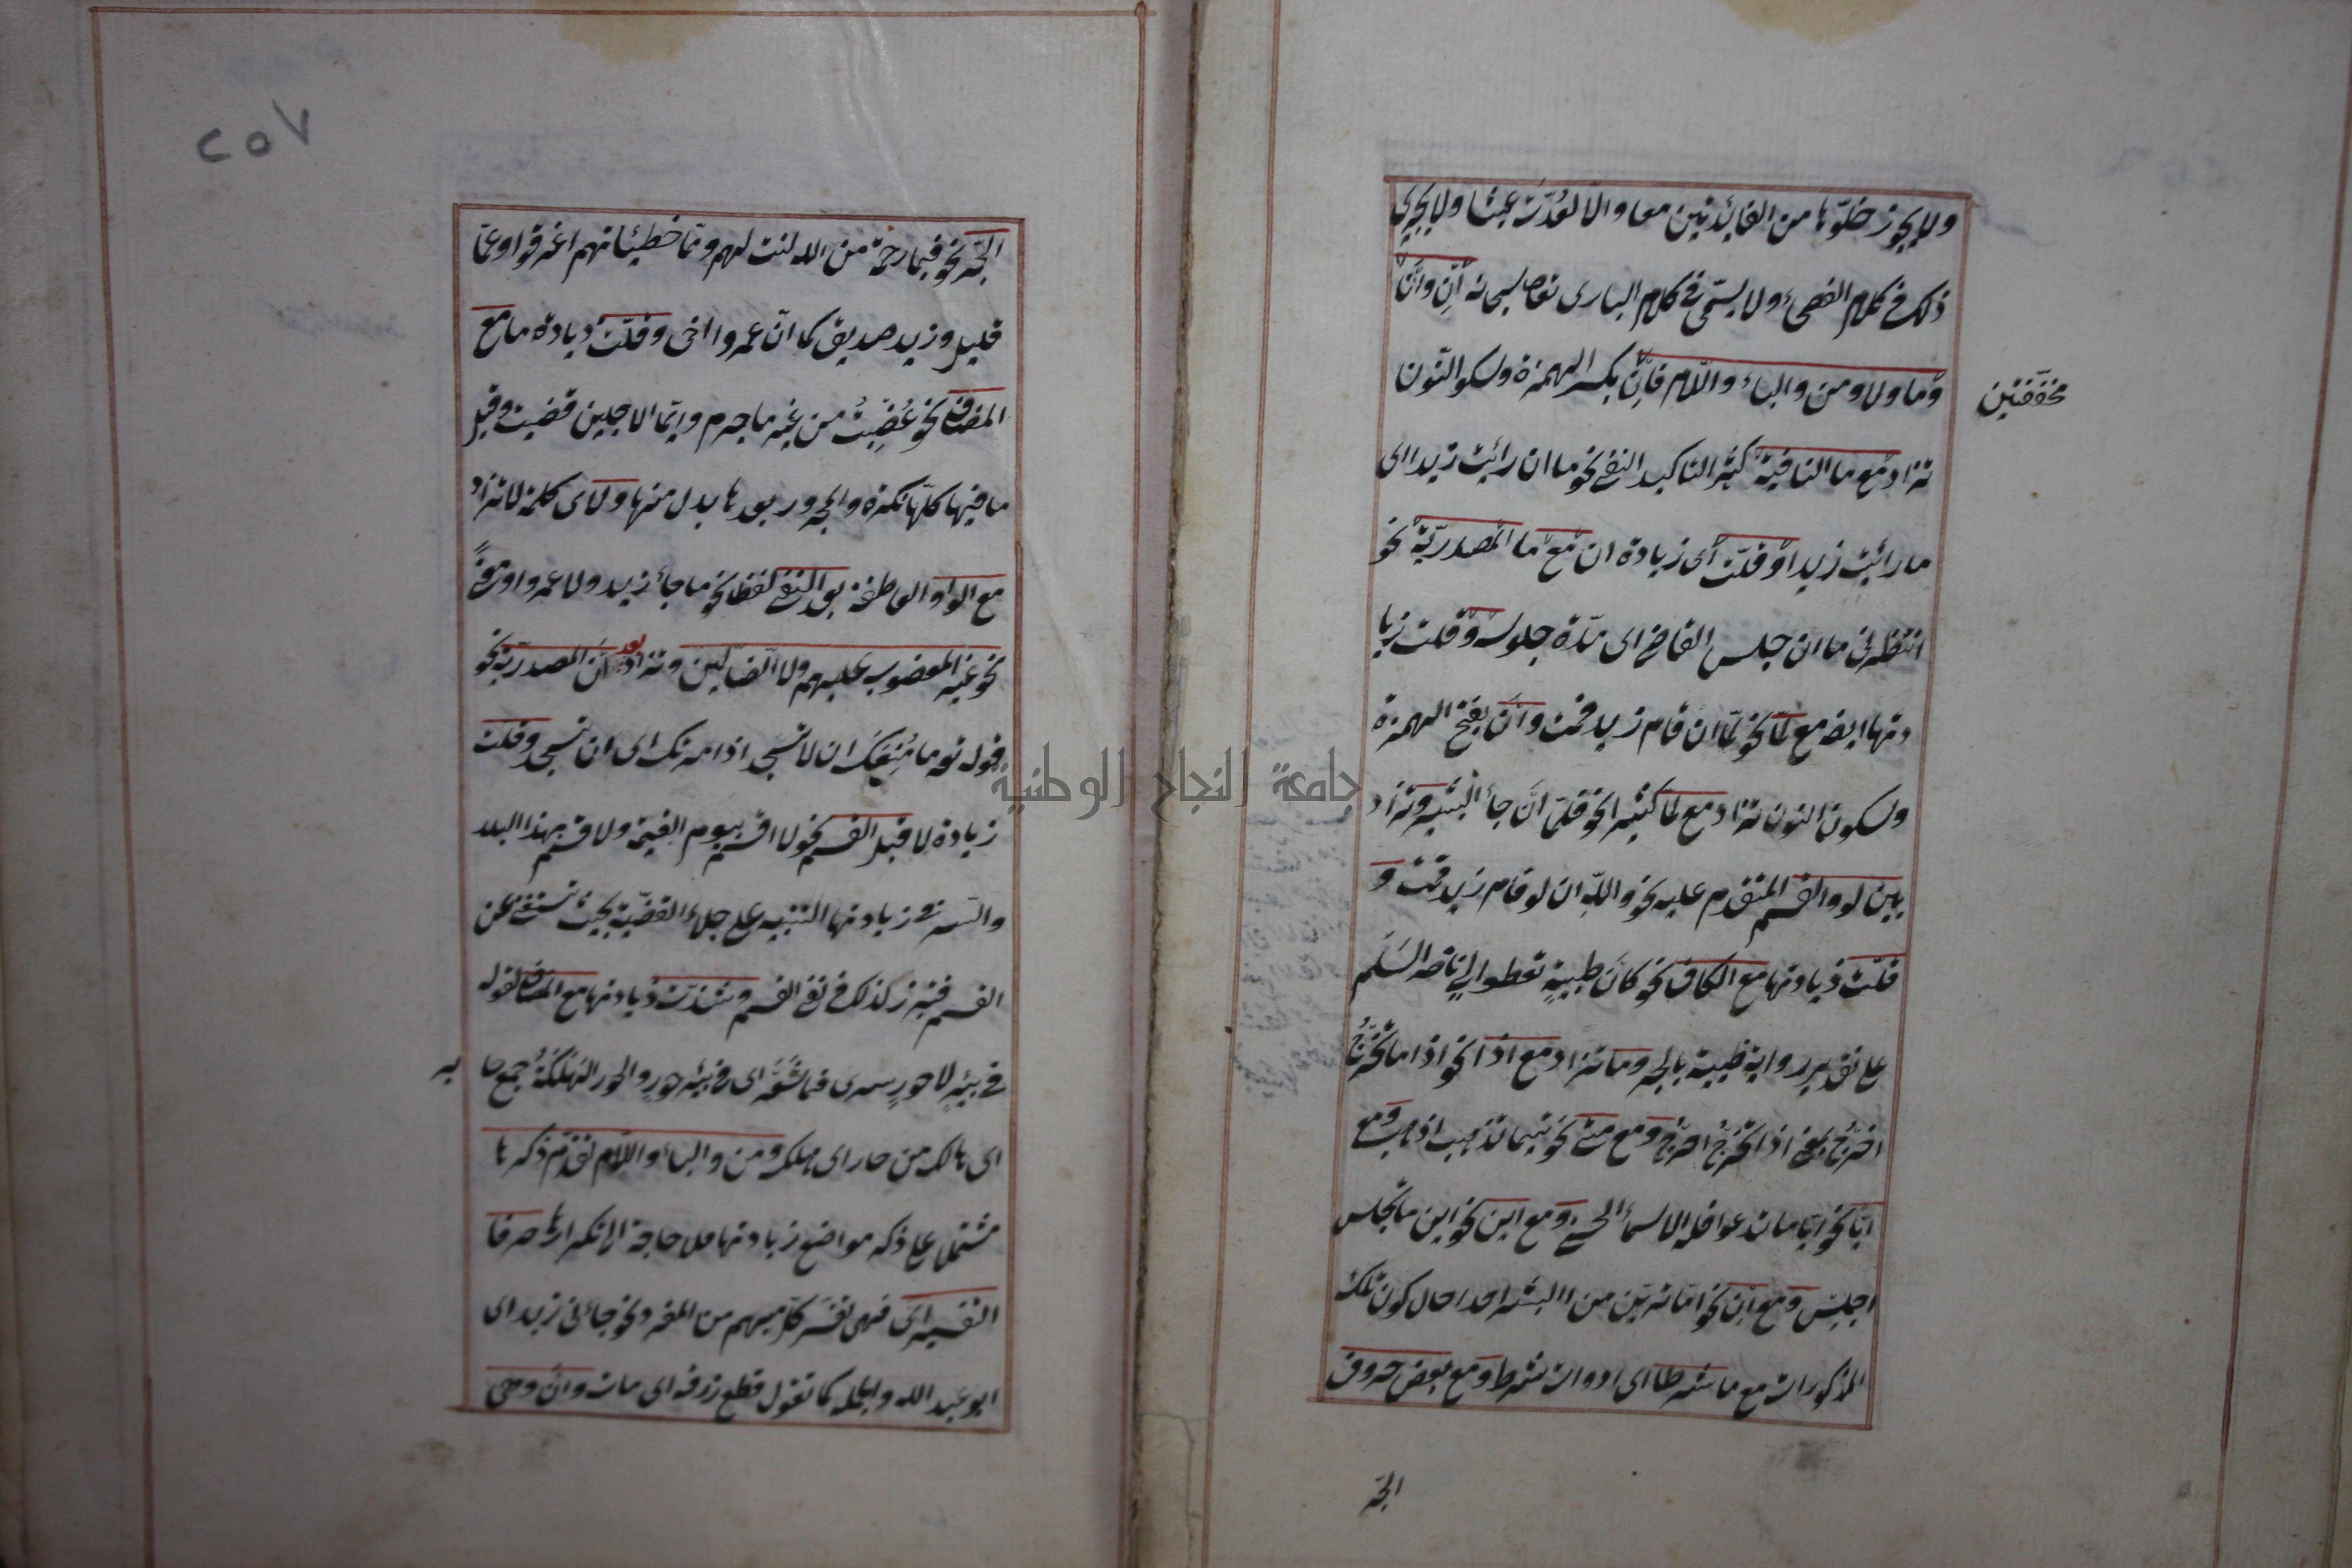 ولا يجوز خلوّها من الفائدتين معا والّا لعُدّت عبثا ولا يجرى
ذلك فى كلام الفصحاء ولا يسمّى فى كلام البارى تعا سبحانه أِن وأَن
مخففتين
وما ولا ومن والباء واللّام فاِن بكسر الهمزة وسكو النّون
تزاد مع ما النافية كثير التاكيد النفى نحو ما ان رائت زيدا اى
ما رائت زيدا وقلّت اى زيادة ان مع ما المصدريّة نحو
انتظرنى ما ان جلس القاضى اى مدّة جلوسه وقلت زيا
دتها ايض مع لمّا نحو لمّا ان قام زيد قمت وأَن بفتح الهمزة
وسكون النون تزاد مع لمّا كثيرا نحو فلمّا ان جاء البشير وتزاد
بين لو والقسم المتقدم عليه نحو والله ان لو قام زيد قمت و
قلّت زيادتها مع الكاف نحو كان ظبيةٍ تعطوا الى ناضر السَلَم
على تقدير رواية ظبية بالجر وما تزاد مع اذا نحو اذا ما تَخْرُجُ
اخرُجْ بمعنى اذا تخرُجُ اخرج ومع متى نحو متيما تذهب اذهب ومع
ايّا نحو ايّا ما تدعوا فله الاسماء الحسنى ومع اين نحو اين ما تجلس
اجلِس ومع اِن نحو امّا ترينّ من البشر احدا حال كون تلك
المذكورات مع ما شرطا اى ادوات شرط ومع بعض حروف
الجرّ
٢٥٧
الجرّ نحو فبما رحمة من الله لنت لهم وممّا خطيئاتهم اغرقوا وعمّا
قليل وزيد صديق كما انّ عمروا اخى وقلّت زيادة ما مع
المضاف نحو غَضِبتُ من غير ما جرم وايّما الاجلين قضيت وقيل
ما فيها كلّها نكرة والمجرور بعدها بدل منها ولا اى كلمة لا تزاد
مع الواو العاطفة بعد النفى لفظا نحو ما جاء زيد ولا عمرو او معنًى
نحو غير المغضوب عليهم ولا الضالّين وتزاد بعد أن المصدريّة نحو
قوله تع ما منعك ان لا تسجد اذ امرتك اى ان تسجد وقلت
زيادة لا قبل القسم نحو لا اقسم بيوم القيمة ولا اقسم بهذا البلد
والسّر فى زيادتها التنبيه على جلاء القضيّة بحيث تستغنى عن
القسم فيبرز كذلك فى نفى القسم وشذّت زيادتها مع المضاف لقوله
فى بئرٍ لا حورٍ سرى فما شَعَرَ اى فى بئر حورٍ والحور الهَلَكَةُ جمع حا
ير
اى هالك من حار اى هلك ومن والباء واللّام تقدّم ذكرها
مشتمل على ذكر مواضع زيادتها فلا حاجة الى تكرارها حرفا
التفسير اى فهى تفسّر كلّ مبهم من المفرد نحو جاءنى زيد اى
ابو عبد الله والجملة كما تقول قطع رزقه اى مات وأن وهى
جامعة النجاح الوطنية